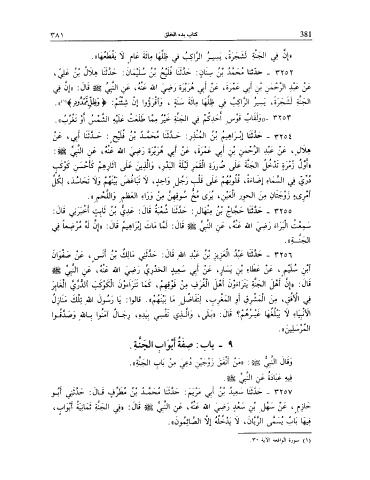 381 كتاب بدء الخلق ٣٨١
«إِنَّ فِي الْجَنَّةِ لَشَجَرَةً، يَسِيرُ الرَّاكِبُ فِي ظِلِّهَا مِائَةَ عَامٍ لَا يَقْطَعُهَا».
٣٢٥٢ - حَدَّثَنَا مُحَمَّدُ بْنُ سِنَانٍ: حَدَّثَنَا فُلَيْحُ بْنُ سُلَيْمَانَ: حَدَّثَنَا هِلَالُ بْنُ عَلِيٍّ،
عَنْ عَبْدِ الرَّحْمَنِ بْنِ أَبِي عَمْرَةَ، عَنْ أَبِي هُرَيْرَةَ رَضِيَ اللهُ عَنْهُ، عَنِ النَّبِيِّ ﷺ قَالَ: «إِنَّ فِي
الْجَنَّةِ لَشَجَرَةً، يَسِيرُ الرَّاكِبُ فِي ظِلِّهَا مِائَةَ سَنَةٍ، وَاقْرَؤُوا إِنْ شِئْتُمْ: ﴿وَظِلٍّ مَّمْدُودٍ﴾(١)».
٣٢٥٣ - «وَلَقَابُ قَوْسِ أَحَدِكُمْ فِي الْجَنَّةِ خَيْرٌ مِمَّا طَلَعَتْ عَلَيْهِ الشَّمْسُ أَوْ تَغْرُبُ».
٣٢٥٤ - حَدَّثَنَا إِبْرَاهِيمُ بْنُ الْمُنْذِرِ: حَدَّثَنَا مُحَمَّدُ بْنُ فُلَيْحٍ: حَدَّثَنَا أَبِي، عَنْ
هِلَالٍ، عَنْ عَبْدِ الرَّحْمَنِ بْنِ أَبِي عَمْرَةَ، عَنْ أَبِي هُرَيْرَةَ رَضِيَ اللهُ عَنْهُ، عَنِ النَّبِيِّ ﷺ:
«أَوَّلُ زُمْرَةٍ تَدْخُلُ الْجَنَّةَ عَلَى صُورَةِ الْقَمَرِ لَيْلَةَ الْبَدْرِ، وَالَّذِينَ عَلَى آثَارِهِمْ كَأَحْسَنِ كَوْكَبٍ
دُرِّيٍّ فِي السَّمَاءِ إِضَاءَةً، قُلُوبُهُمْ عَلَى قَلْبِ رَجُلٍ وَاحِدٍ، لَا تَبَاغُضَ بَيْنَهُمْ وَلَا تَحَاسُدَ، لِكُلِّ
امْرِئٍ زَوْجَتَانِ مِنَ الْحُورِ الْعِينِ، يُرَى مُخُّ سُوقِهِنَّ مِنْ وَرَاءِ الْعَظْمِ وَاللَّحْمِ».
٣٢٥٥ - حَدَّثَنَا حَجَّاجُ بْنُ مِنْهَالٍ: حَدَّثَنَا شُعْبَةُ قَالَ: عَدِيُّ بْنُ ثَابِتٍ أَخْبَرَنِي قَالَ:
سَمِعْتُ الْبَرَاءَ رَضِيَ اللهُ عَنْهُ، عَنِ النَّبِيِّ ﷺ قَالَ: لَمَّا مَاتَ إِبْرَاهِيمُ قَالَ: «إِنَّ لَهُ مُرْضِعًا فِي
الْجَنَّةِ».
٣٢٥٦ - حَدَّثَنَا عَبْدُ الْعَزِيزِ بْنُ عَبْدِ اللهِ قَالَ: حَدَّثَنِي مَالِكُ بْنُ أَنَسٍ، عَنْ صَفْوَانَ
ابْنِ سُلَيْمٍ، عَنْ عَطَاءِ بْنِ يَسَارٍ، عَنْ أَبِي سَعِيدٍ الْخُدْرِيِّ رَضِيَ اللهُ عَنْهُ، عَنِ النَّبِيِّ ﷺ
قَالَ: «إِنَّ أَهْلَ الْجَنَّةِ يَتَرَاءَوْنَ أَهْلَ الْغُرَفِ مِنْ فَوْقِهِمْ، كَمَا تَتَرَاءَوْنَ الْكَوْكَبَ الدُّرِّيَّ الْغَابِرَ
فِي الْأُفُقِ، مِنَ الْمَشْرِقِ أَوِ الْمَغْرِبِ، لِتَفَاضُلِ مَا بَيْنَهُمْ». قَالُوا: يَا رَسُولَ اللهِ تِلْكَ مَنَازِلُ
الْأَنْبِيَاءِ لَا يَبْلُغُهَا غَيْرُهُمْ؟ قَالَ: «بَلَى، وَالَّذِي نَفْسِي بِيَدِهِ، رِجَالٌ آمَنُوا بِاللهِ وَصَدَّقُوا
الْمُرْسَلِينَ».
٩ - باب: صِفَةُ أَبْوَابِ الْجَنَّةِ.
وَقَالَ النَّبِيُّ ﷺ: «مَنْ أَنْفَقَ زَوْجَيْنِ دُعِيَ مِنْ بَابِ الْجَنَّةِ».
فِيهِ عُبَادَةُ عَنِ النَّبِيِّ ﷺ
٣٢٥٧ - حَدَّثَنَا سَعِيدُ بْنُ أَبِي مَرْيَمَ: حَدَّثَنَا مُحَمَّدُ بْنُ مُطَرِّفٍ قَالَ: حَدَّثَنِي أَبُو
حَازِمٍ، عَنْ سَهْلِ بْنِ سَعْدٍ رَضِيَ اللهُ عَنْهُ، عَنِ النَّبِيِّ ﷺ قَالَ: «فِي الْجَنَّةِ ثَمَانِيَةُ أَبْوَابٍ،
فِيهَا بَابٌ يُسَمَّى الرَّيَّانَ، لَا يَدْخُلُهُ إِلَّا الصَّائِمُونَ».
(١) سورة الواقعة الآية ٣٠.